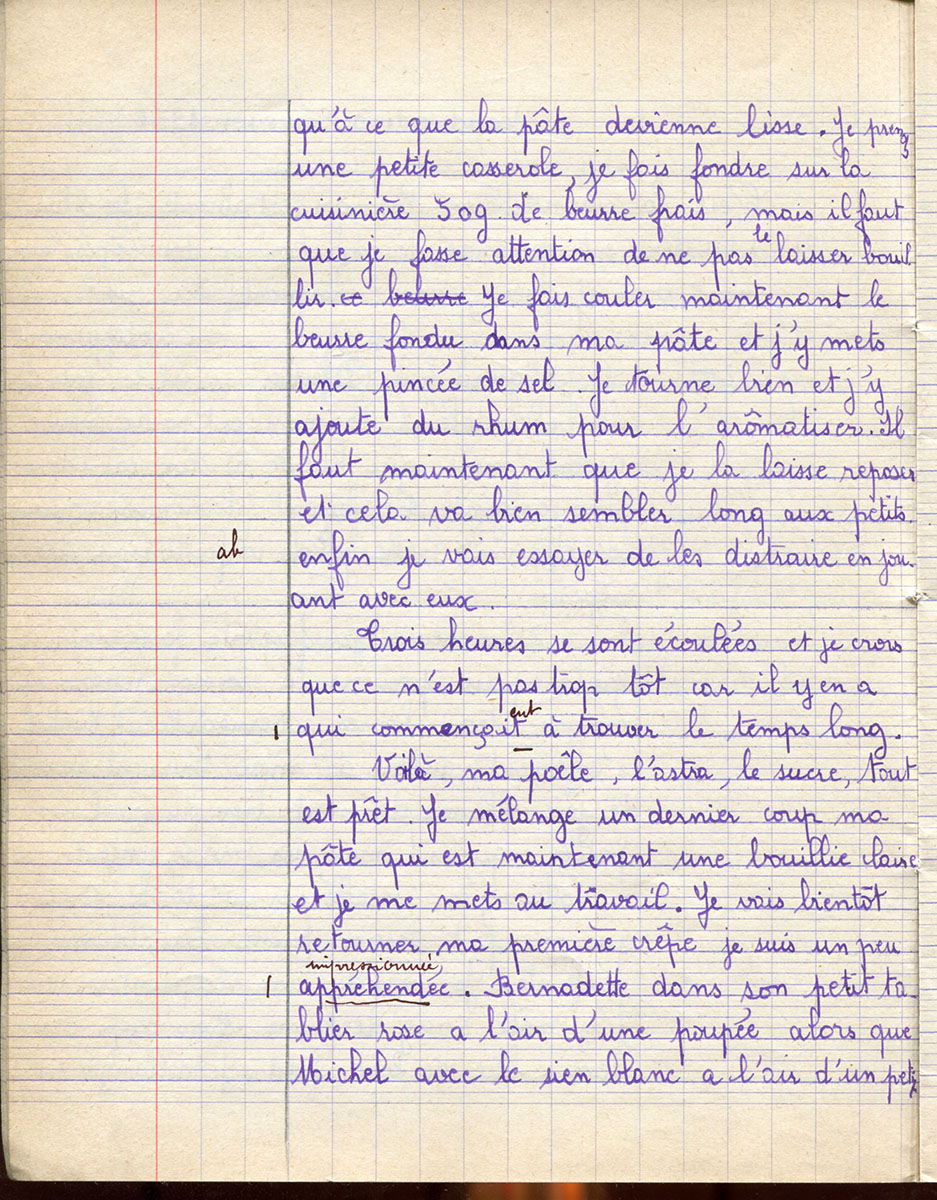 qu'à ce que la pâte devienne lisse. Je prends
une petite casserole, je fais fondre sur la
cuisinière 50g de beurre frais, mais il faut
que je fasse attention de ne pas le laisser bouil
lir. ce beurre Je fais couler maintenant le
beurre fondu dans ma pâte et j'y mets
une pincée de sel. Je tourne bien et j'y
ajoute du rhum pour l'arômatiser. Il
faut maintenant que je la laisse reposer
et cela va bien sembler long aux petits.
ab enfin je vais essayer de les distraire en jou-
ant avec eux.
Trois heures se sont écoulées et je crois
que ce n'est pas trop tôt car il y en a
ent
1 qui commençait à trouver le temps long.
Voilà, ma poêle, l'astra, le sucre, tout
est prêt. Je mélange un dernier coup ma
pâte qui est maintenant une bouillie claire
et je me mets au travail. Je vais bientôt
retourner ma première crêpe je suis un peu
impressionnée
1 appréhendée. Bernadette dans son petit ta-
blier rose a l'air d'une poupée alors que
Michel avec le sien blanc a l'air d'un petit